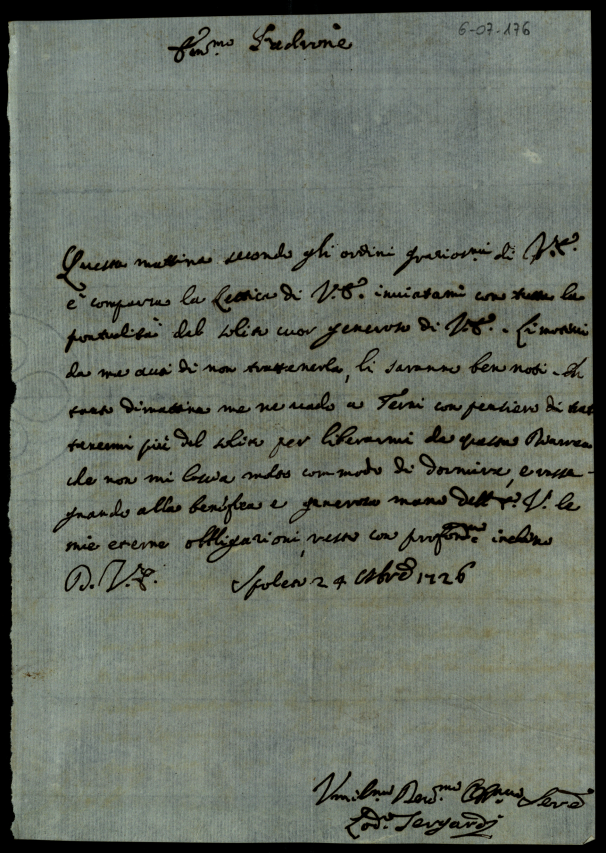 6-07-176
Em.mo Padrone
Questa mattina secondo gli ordini graziosmi di V.E.
è comparsa la Lettica di V.E. inviatami con tutta la
pontualità del solito cuor generoso di V.E. Li motivi
da me avuti di non trattenerla, li saranno ben noti. In
tanto dimattina me ne vado a Terni con pensiero di trat
tenermi più del solito per liberarmi da questa
che non mi lascia molto commodo di dormire, e rasse-
gnando alla benefica e generosa mano dell' E. V. le
mie eterne obbligazioni, resto con profondmo inchino
D. V. E. Spoleto 24 Obre 1726
Umilmo Devmo Obbmo Serve
Lodo Sergardi